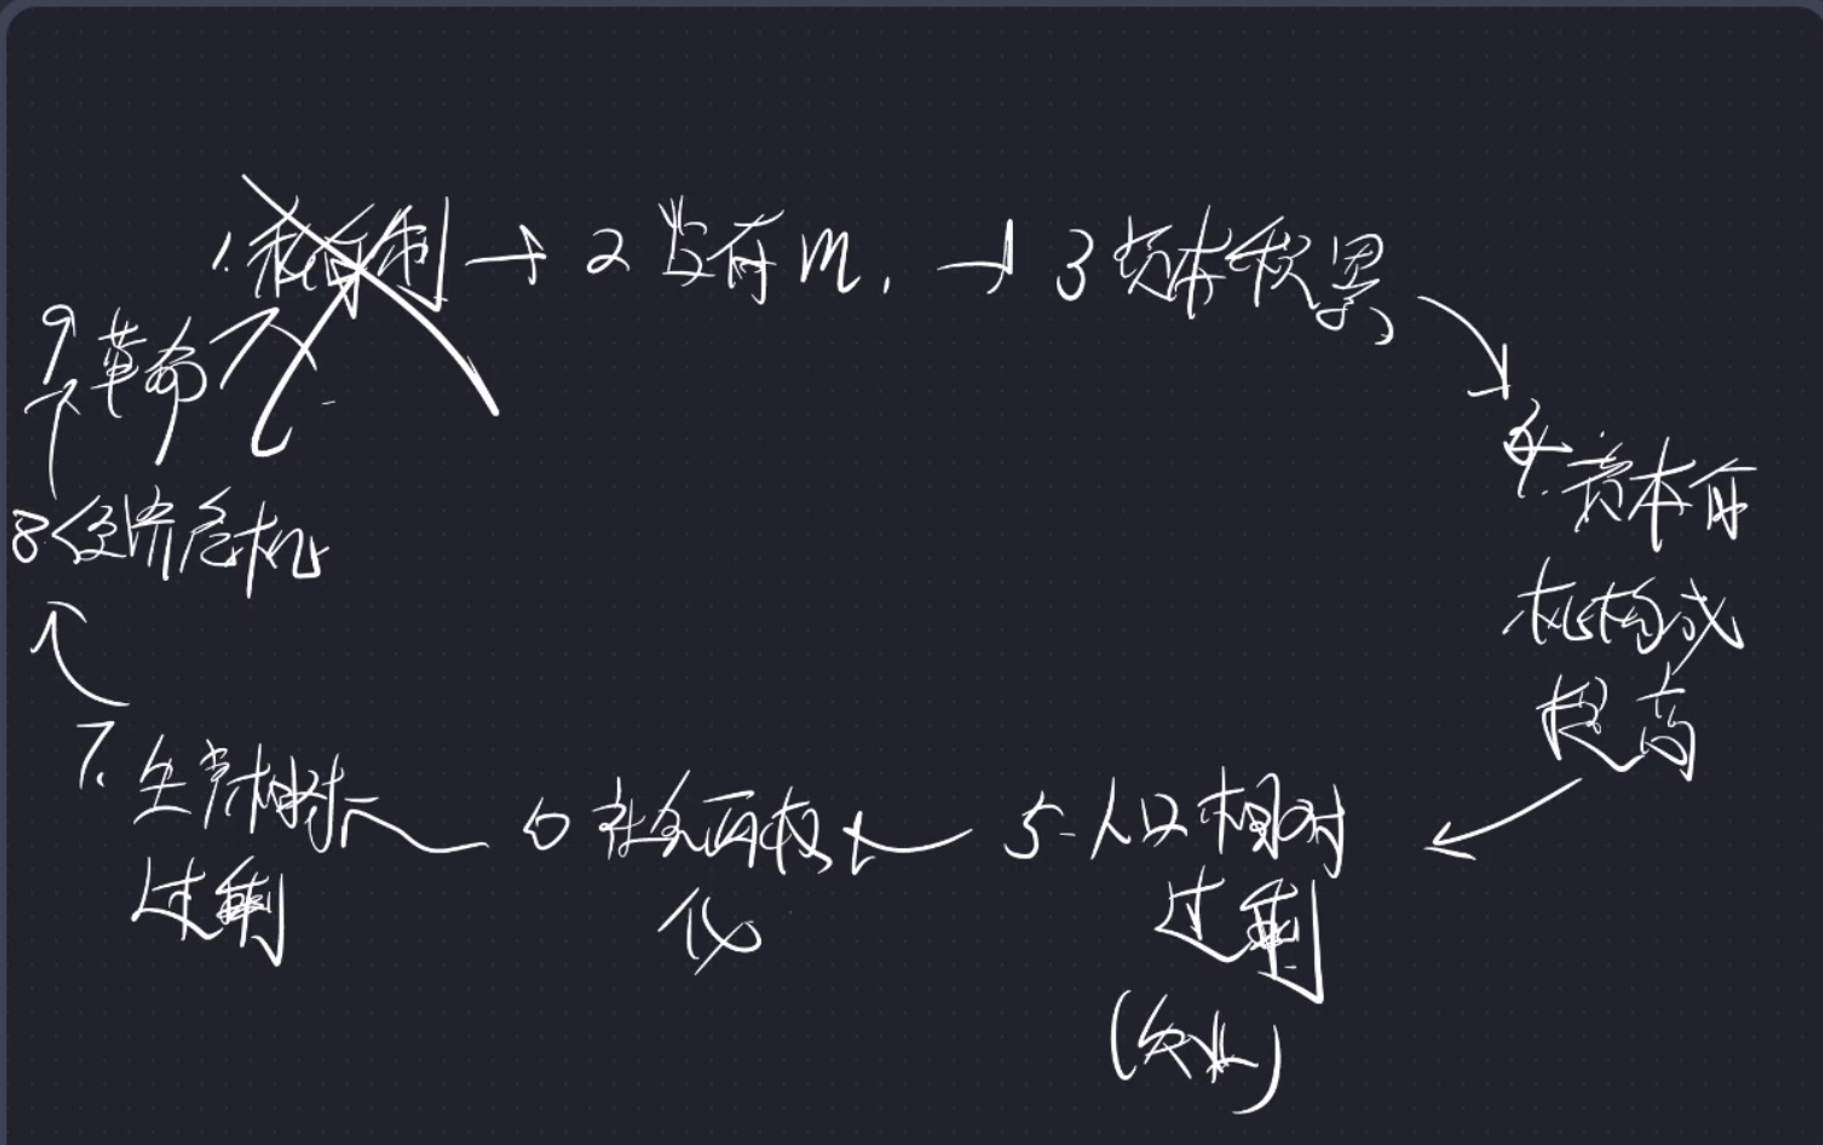 1.私有制 → 2 占有 m. → 3 资本积累
4.资本有
机构成
提高
5.人口相对
过剩
(失业)
6 社会两极
化
7.生产相对
过剩
8.经济危机
9.革命